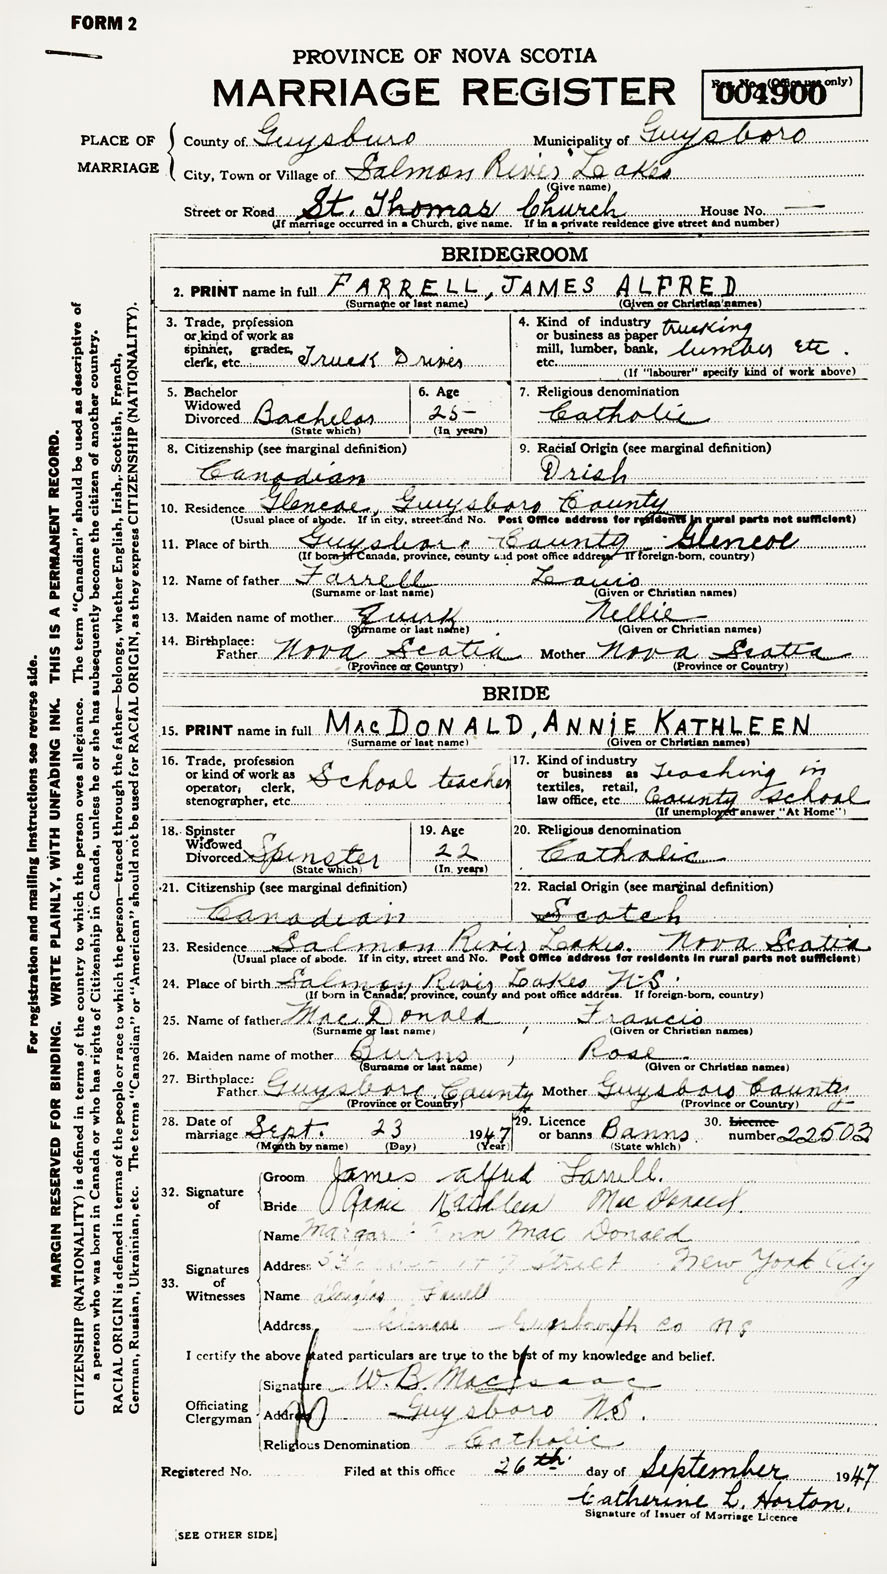 FORM 2
PROVINCE OF NOVA SCOTIA
MARRIAGE REGISTER
Reg. No. (Office use only)
004900
PLACE OF MARRIAGE
County of Guysboro Municipality of Guysboro
City, Town or Village of Salmon River Lakes
(Give name)
Street or Road St. Thomas Church House No. —
(If marriage occurred in a Church, give name. If in a private residence give street and number)
BRIDEGROOM
2. PRINT name in full FARRELL, JAMES ALFRED
(Surname or last name) (Given or Christian names)
3. Trade, profession or kind of work as spinner, grader, clerk, etc. Truck Driver
4. Kind of industry or business as paper mill, lumber, bank, etc. trucking lumber etc.
(If "labourer" specify kind of work above)
5. Bachelor Widowed Divorced Bachelor
(State which)
6. Age 25
(In years)
7. Religious denomination
Catholic
8. Citizenship (see marginal definition)
Canadian
9. Racial Origin (see marginal definition)
Irish
10. Residence Glencoe, Guysboro County
(Usual place of abode. If in city, street and No. Post Office address for residents in rural parts not sufficient)
11. Place of birth Guysboro County Glencoe
(If born in Canada, province, county and post office address. If foreign-born, country)
12. Name of father Farrell Louis
(Surname or last name) (Given or Christian names)
13. Maiden name of mother Quirk Nellie
(Surname or last name) (Given or Christian names)
14. Birthplace: Father Nova Scotia Mother Nova Scotia
(Province or Country) (Province or Country)
BRIDE
15. PRINT name in full MACDONALD, ANNIE KATHLEEN
(Surname or last name) (Given or Christian names)
16. Trade, profession or kind of work as operator, clerk, stenographer, etc. School teacher
17. Kind of industry or business as textiles, retail, law office, etc Teaching in County school
(If unemployed answer "At Home")
18. Spinster Widowed Divorced Spinster
(State which)
19. Age 22
(In years)
20. Religious denomination
Catholic
21. Citizenship (see marginal definition)
Canadian
22. Racial Origin (see marginal definition)
Scotch
23. Residence Salmon River Lakes. Nova Scotia
(Usual place of abode. If in city, street and No. Post Office address for residents in rural parts not sufficient)
24. Place of birth Salmon River Lakes N.S.
(If born in Canada, province, county and post office address. If foreign-born, country)
25. Name of father MacDonald, Francis
(Surname or last name) (Given or Christian names)
26. Maiden name of mother Burns, Rose
(Surname or last name) (Given or Christian names)
27. Birthplace: Father Guysboro County Mother Guysboro County
(Province or Country) (Province or Country)
28. Date of marriage Sept. 23 1947
(Month by name) (Day) (Year)
29. Licence or banns Banns
(State which)
30. Licence number 22503
32. Signature of
Groom James Alfred Farrell.
Bride Annie Kathleen MacDonald
33. Signatures of Witnesses
Name Ann Mac Donald
Address Street New York City
Name Farrell
Address Glencoe Co N S
I certify the above stated particulars are true to the best of my knowledge and belief.
Officiating Clergyman
Signature W. B. MacIsaac
Address Guysboro N.S.
Religious Denomination Catholic
Registered No. Filed at this office 26th day of September 1947
Catherine L. Horton.
Signature of Issuer of Marriage Licence
[SEE OTHER SIDE]
For registration and mailing instructions see reverse side.
MARGIN RESERVED FOR BINDING. WRITE PLAINLY, WITH UNFADING INK. THIS IS A PERMANENT RECORD.
CITIZENSHIP (NATIONALITY) is defined in terms of the country to which the person owes allegiance. The term "Canadian" should be used as descriptive of
a person who was born in Canada or who has rights of Citizenship in Canada, unless he or she has subsequently become the citizen of another country.
RACIAL ORIGIN is defined in terms of the people or race to which the person—traced through the father—belongs, whether English, Irish, Scottish, French,
German, Russian, Ukrainian, etc. The terms "Canadian" or "American" should not be used for RACIAL ORIGIN, as they express CITIZENSHIP (NATIONALITY).